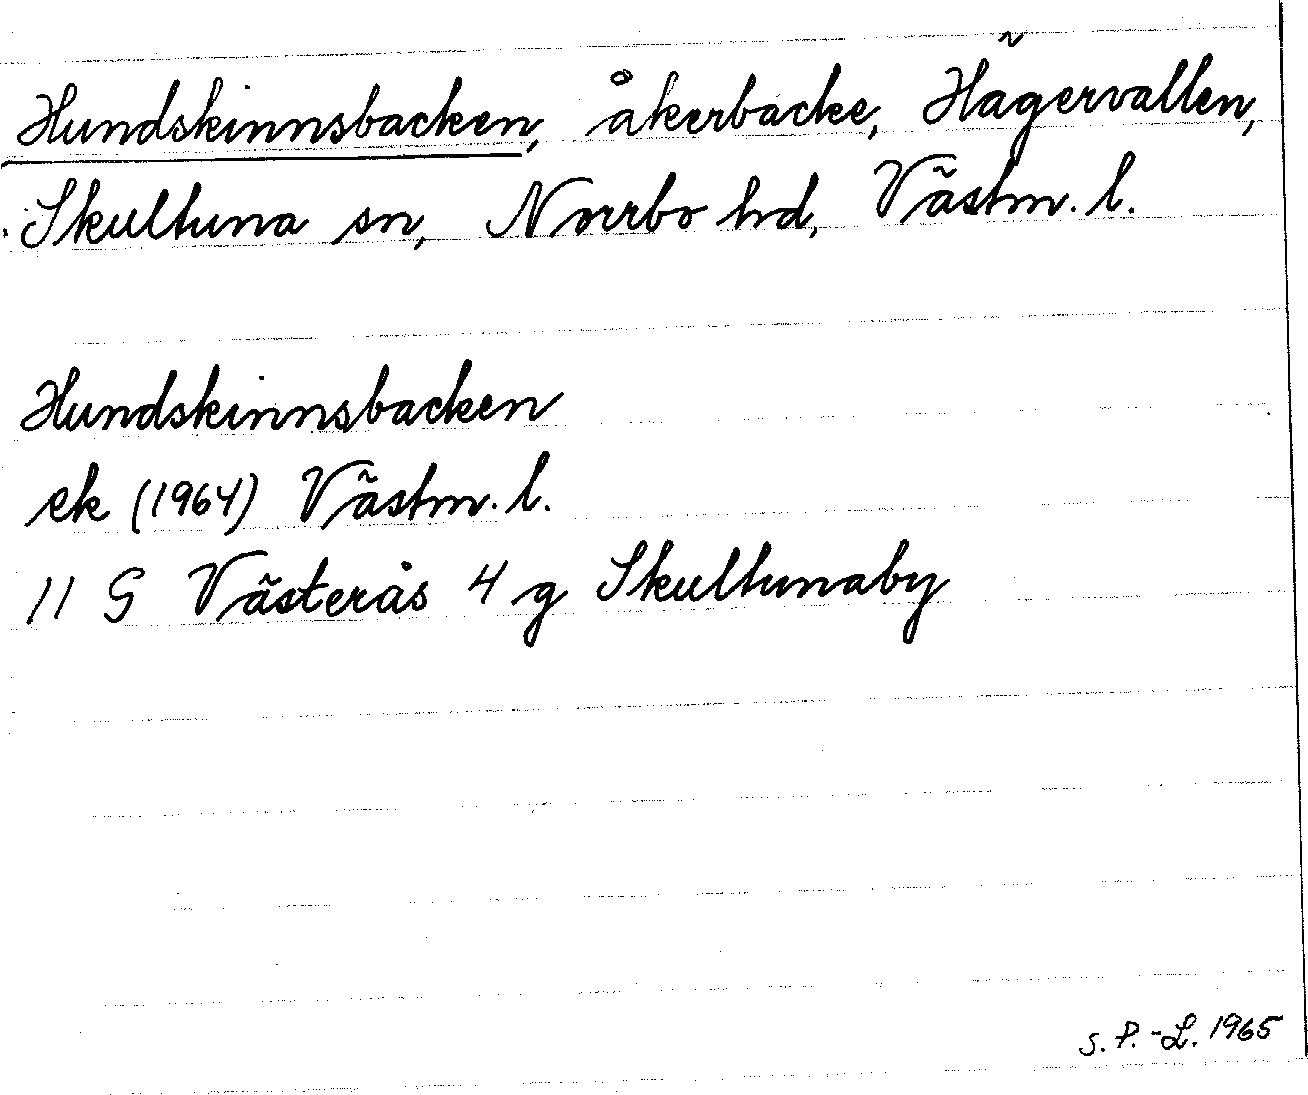 Hundskinnsbacken, åkerbacke, Hägervallen,
Skultuna sn, Norrbo hd, Västm. l.
Hundskinnsbacken
ek (1964) Västm. l.
11 G Västerås 4 g Skultunaby
S. P.-L. 1965